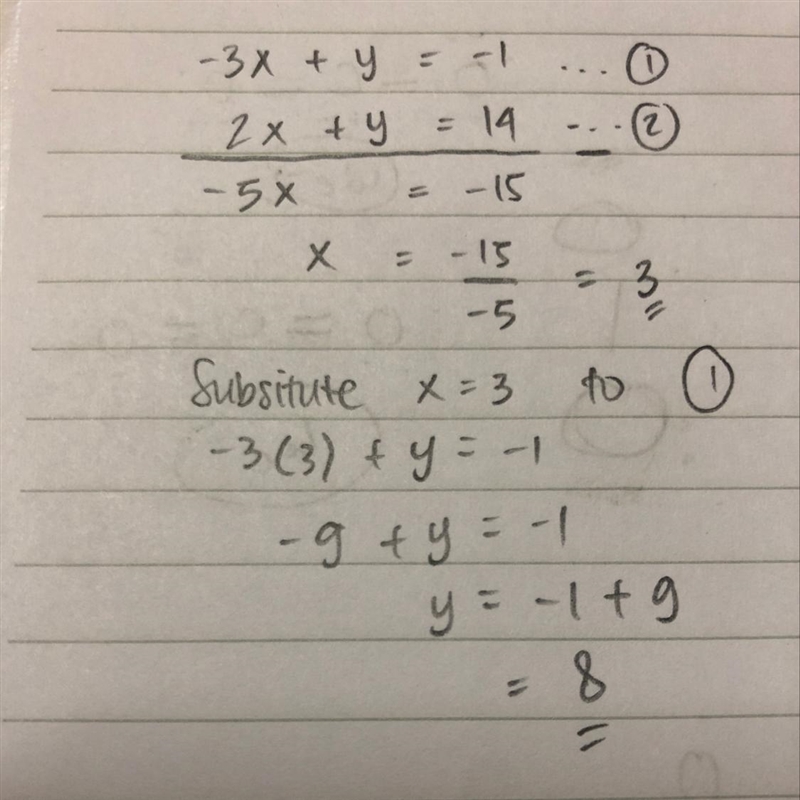 -3x + y = -1 ... ①
2x + y = 14 --- ②
-5x = -15
x = -15/-5 = 3
Subsitute x = 3 to ①
-3(3) + y = -1
-9 + y = -1
y = -1 + 9
= 8